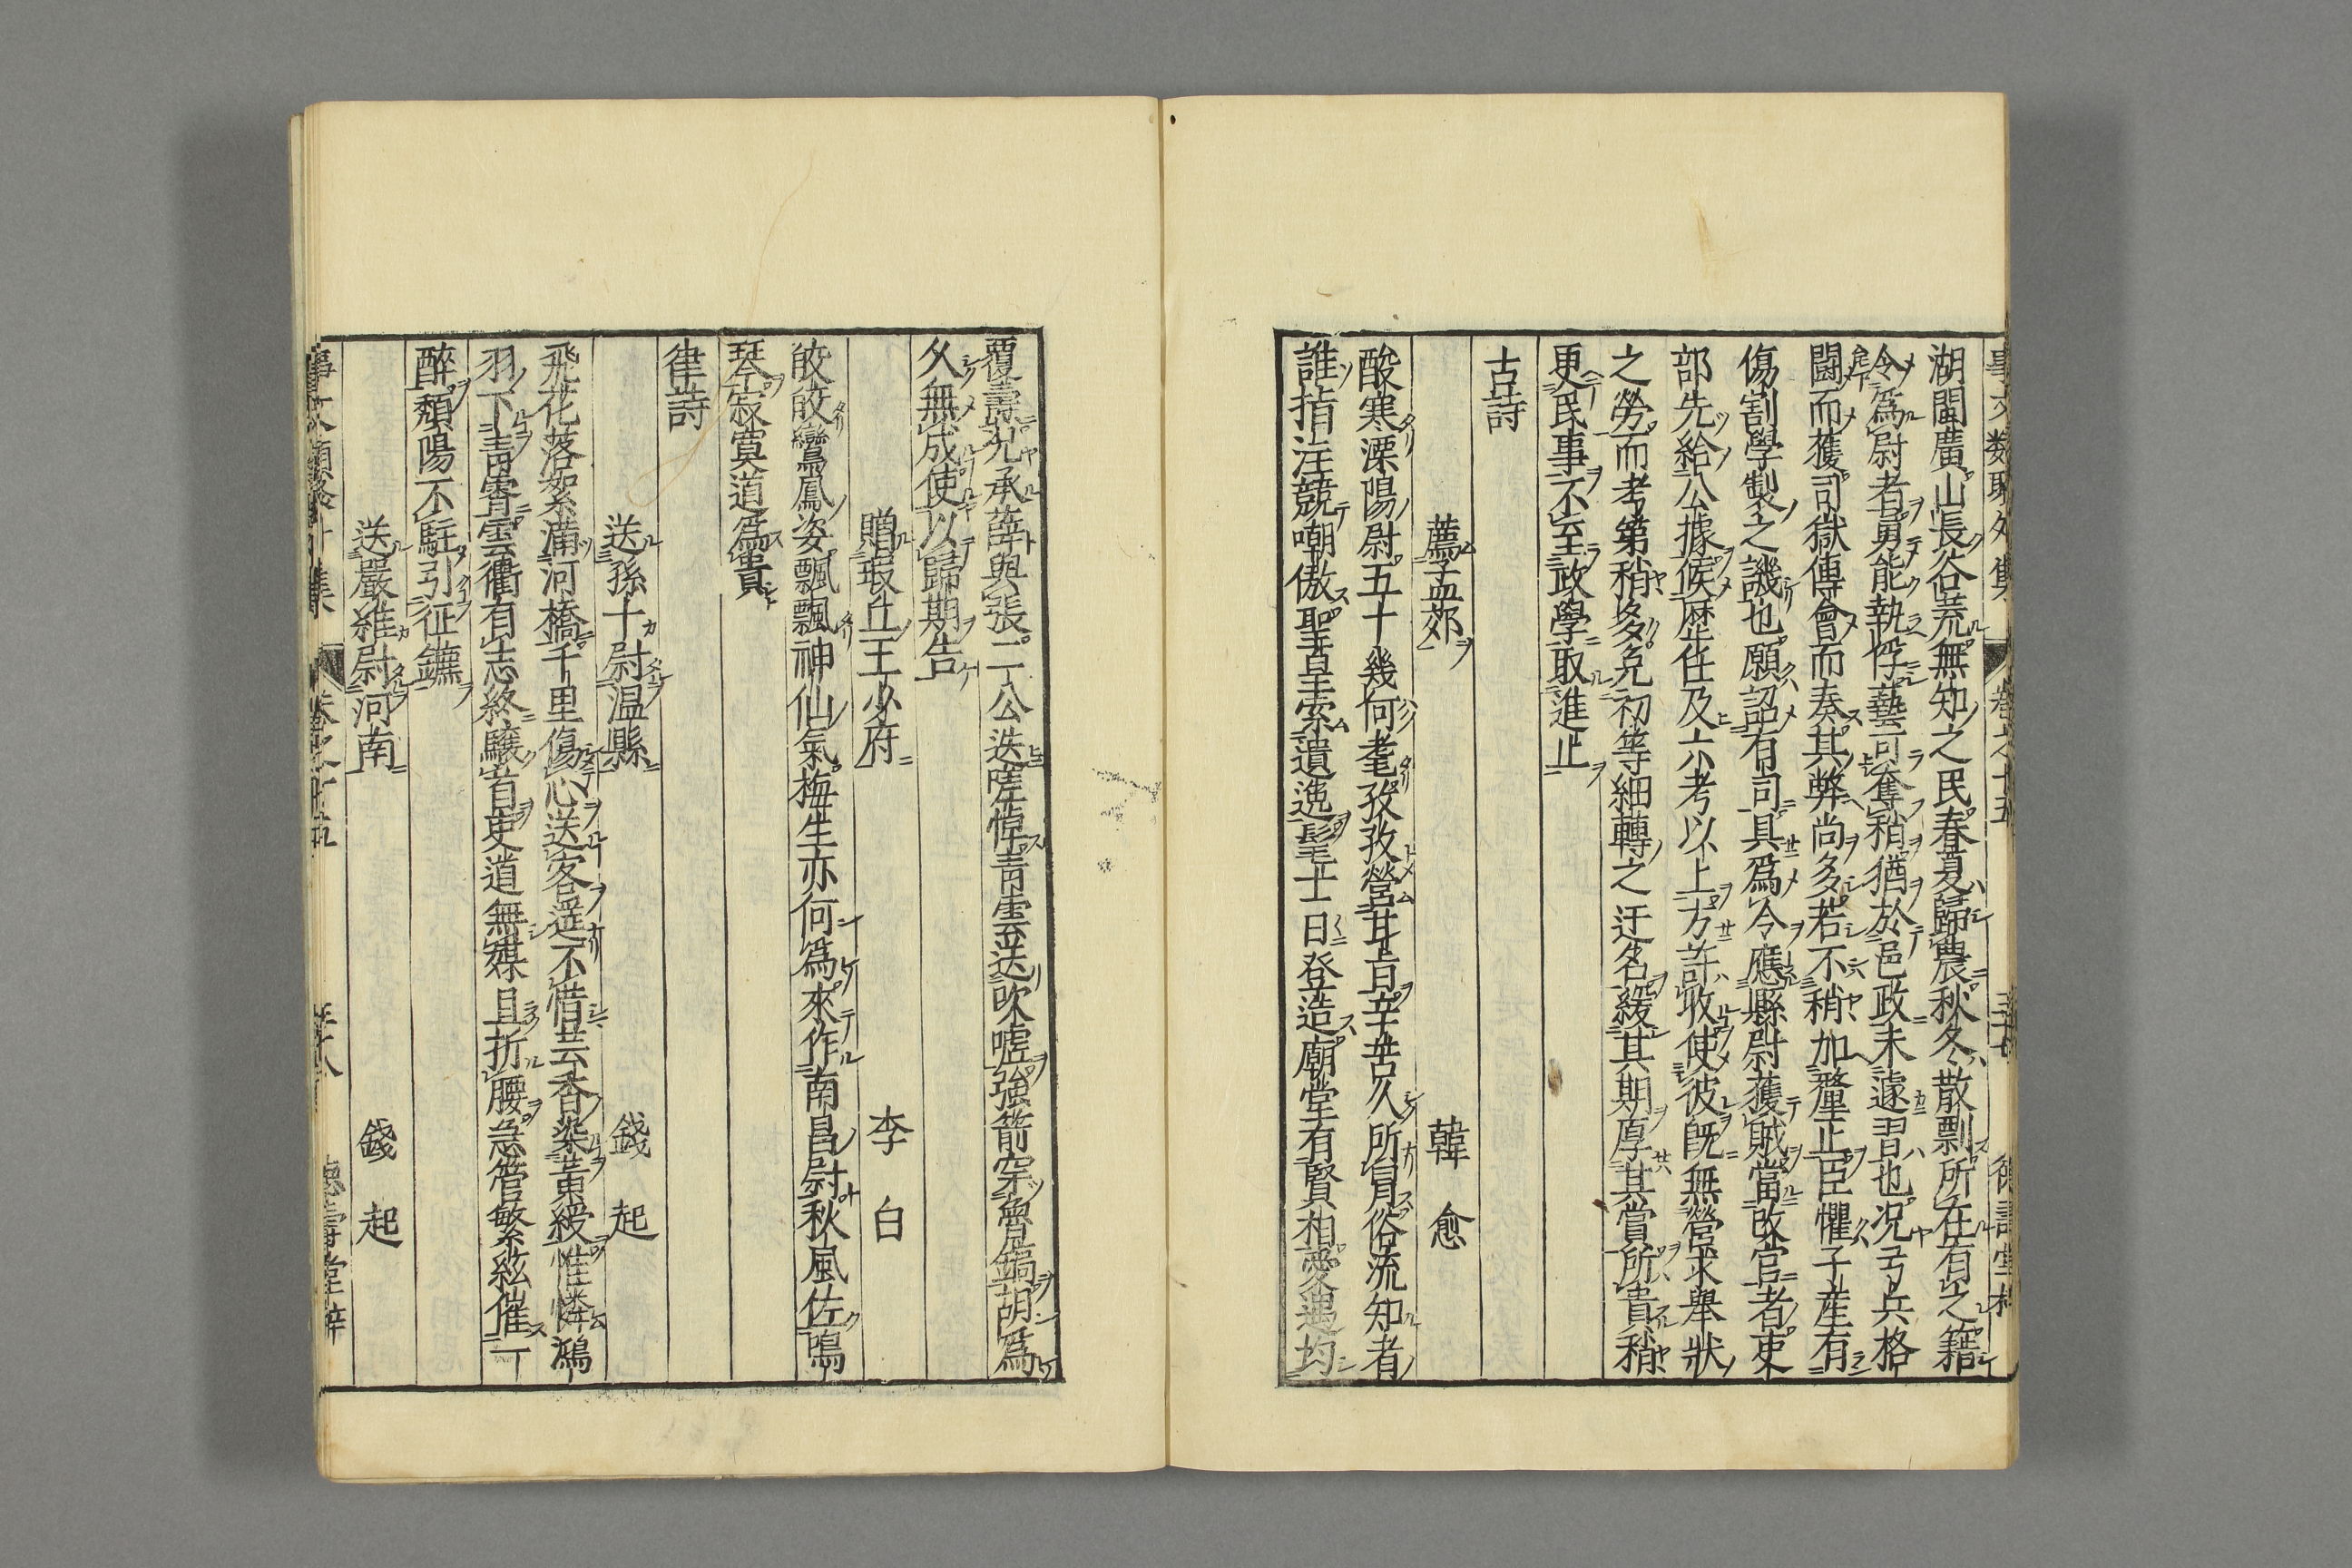 事文類聚外集 卷之十五 三十七 德壽堂梓
湖閩廣山長谷荒無知之民春夏歸農秋冬散剽所在有之籍
令爲尉者勇能執俘藝可奪矟猶於邑政未遽習也况弓兵格
闘而獲司獄傅會而奏其弊尚多若不稍加釐止臣懼子産有
傷割學製之譏也願詔有司具爲令應縣尉獲賊當改官者吏
部先給公據候歴任及六考以上方許收使彼旣無營求舉狀
之勞而考第稍多免初等細轉之迂名緩其期厚其賞所貴稍
更民事不至政學取進止
古詩
薦孟郊 韓愈
酸寒溧陽尉五十幾何耄孜孜營甘旨辛苦久所冐俗流知者
誰指注競嘲傲聖皇索遺逸髦士日登造廟堂有賢相愛遇均
覆壽况承薛與張二公迭嗟悼青雲送吹噓強箭穿魯鎬胡爲
久無成使以歸期告
贈瑕丘王少府 李白
皎皎鸞鳳姿飄飄神仙氣梅生亦何爲來作南昌尉秋風佐鳴
琴寂寞道爲貴
律詩
送孫十尉温縣 錢起
飛花落絮滿河橋千里傷心送客遥不惜芸香染黄綬惟憐鴻
羽下青霄雲衢有志終驤首吏道無媒且折腰急管繁絃催一
醉頽陽不駐引征鑣
送嚴維尉河南 錢起
事文類聚外集 卷之十五 三十八 德壽堂梓